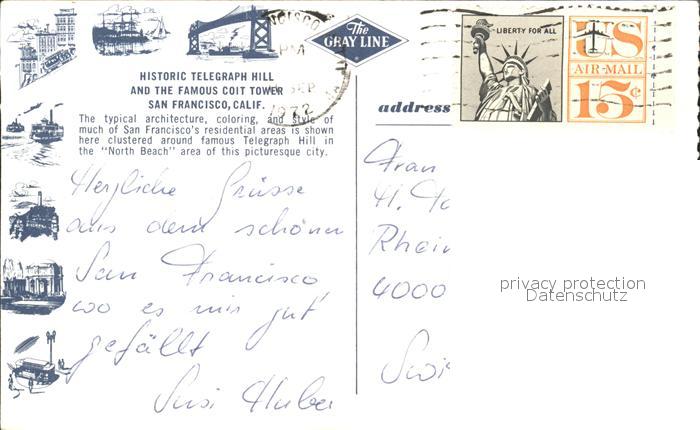 The
GRAY LINE
LIBERTY FOR ALL
US
AIR-MAIL
15¢
SEP
1972
HISTORIC TELEGRAPH HILL
AND THE FAMOUS COIT TOWER
SAN FRANCISCO, CALIF.
The typical architecture, coloring, and style of
much of San Francisco's residential areas is shown
here clustered around famous Telegraph Hill in
the "North Beach" area of this picturesque city.
address
Herzliche Grüsse
aus dem schönen
San Francisco
wo es mir gut
gefällt
Susi Huber
Frau
H.
Rhein
4000
Swi
privacy protection
Datenschutz